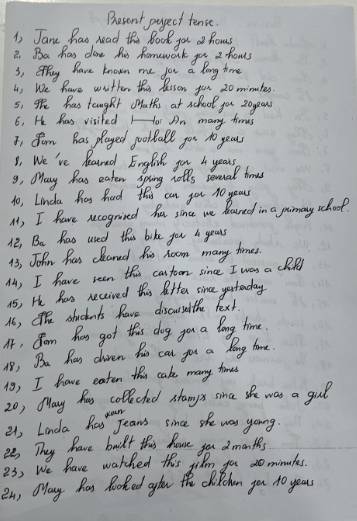 Present perfect tense.
1, Jane has read this book for 2 hours
2. Ba has done his homework for 2 hours
3, They have known me for a long time
4, We have written this lesson for 20 minutes.
5, He has taught Maths at school for 20 years
6, He has visited Hoi An many times
7, Tom has played football for 10 years
8, We've learned English for 4 years
9, May has eaten spring rolls several times
10, Linda has had this car for 10 years
11, I have recognised her since we learned in a primary school.
12, Ba has used this bike for 4 years
13, John has cleaned his room many times.
14, I have seen this cartoon since I was a child
15, He has received this letter since yesterday
16, The students have discussed the text.
17. Tom has got this dog for a long time.
18, Ba has driven his car for a long time.
19, I have eaten this cake many times
20, May has collected stamps since she was a girl
21, Linda has worn Jeans since she was young.
22, They have built this house for 2 months
23, We have watched this film for 20 minutes.
24, May has looked after the children for 10 years